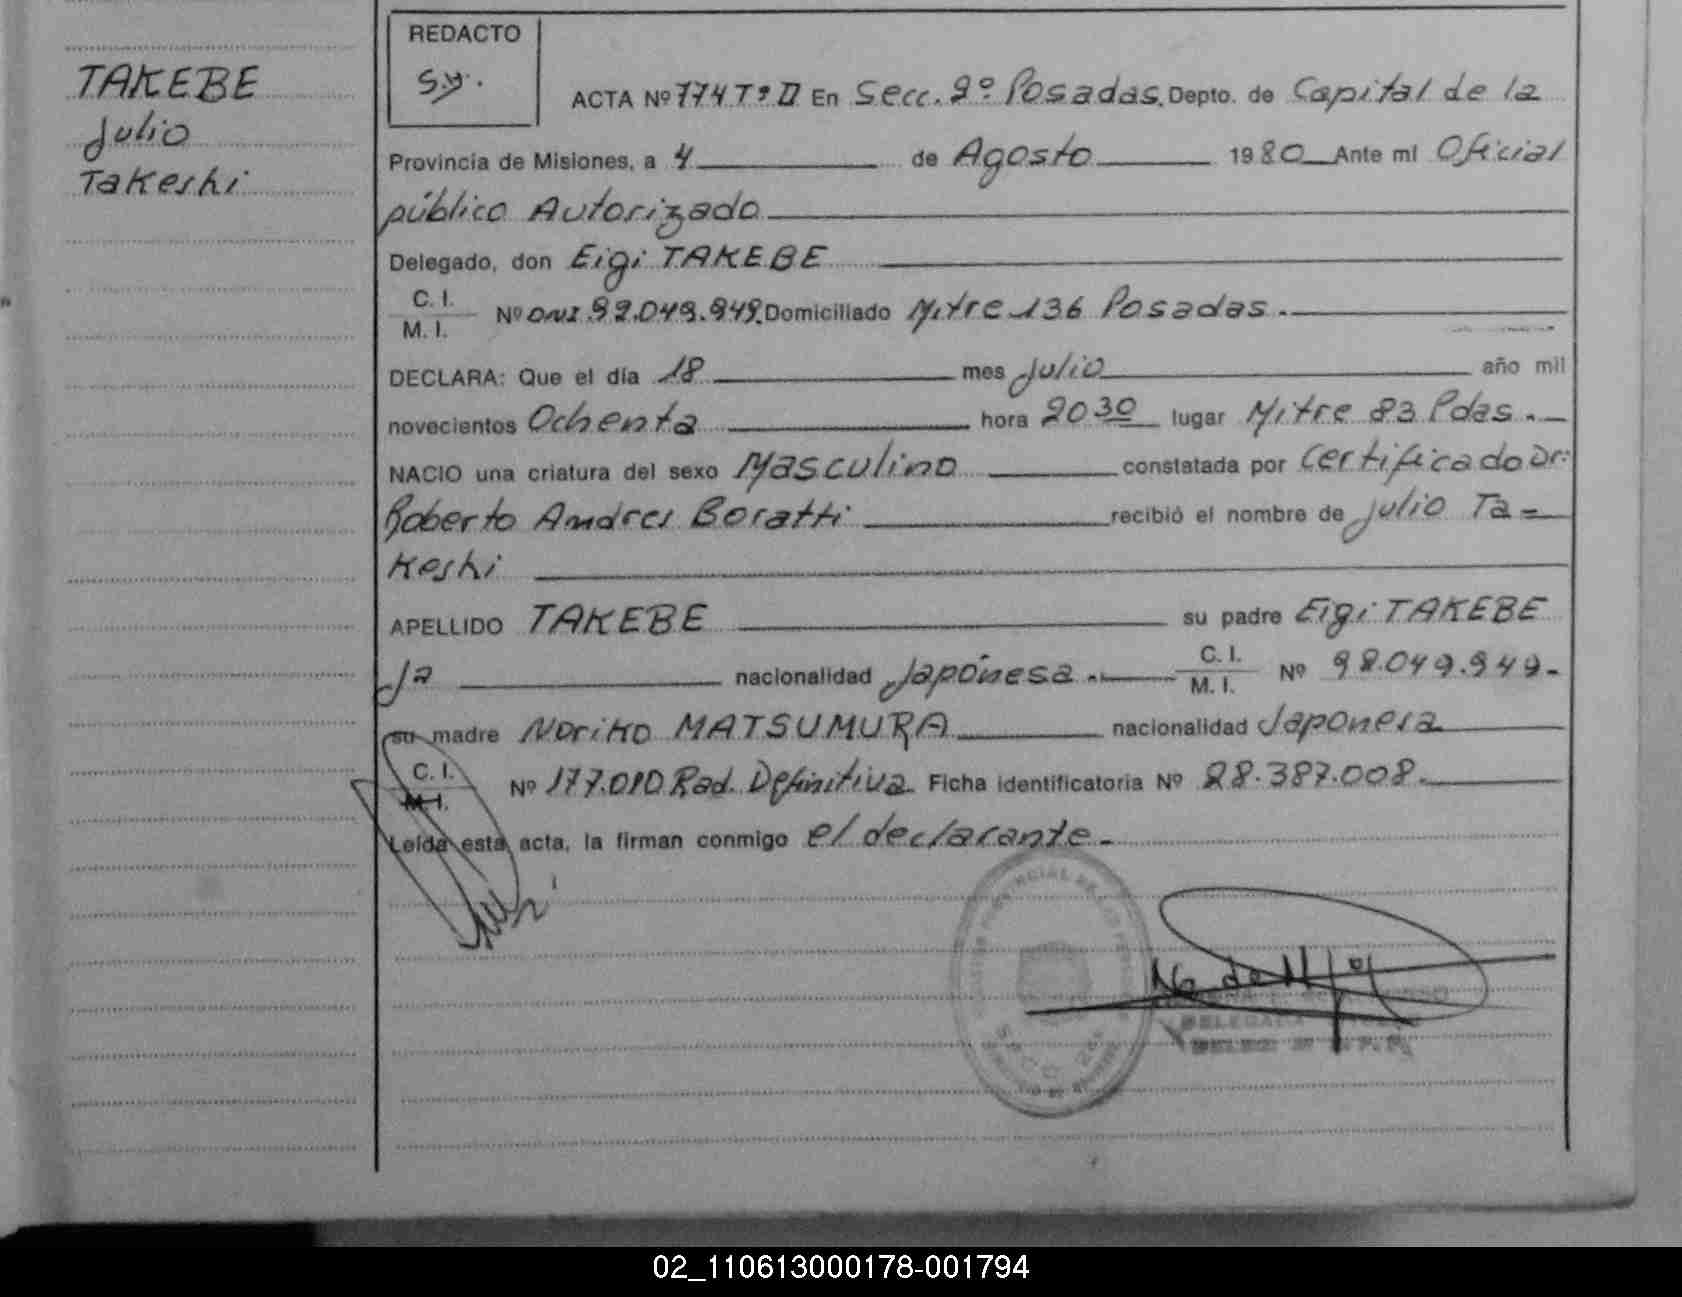 TAKEBE
Julio
Takeshi
REDACTO
S.y.
ACTA Nº 774 Tº II En Secc. 2º Posadas. Depto. de Capital de la
Provincia de Misiones, a 4 de Agosto 1980 Ante mi Oficial
público Autorizado
Delegado, don Eigi TAKEBE
C. I.
M. I.
Nº DNI 92.049.949. Domiciliado Mitre 136 Posadas.
DECLARA: Que el día 18 mes Julio año mil
novecientos Ochenta hora 20 30 lugar Mitre 83 Pdas.
NACIO una criatura del sexo Masculino constatada por Certificado Dr.
Roberto Andres Boratti recibió el nombre de Julio Ta=
Keshi
APELLIDO TAKEBE su padre Eigi TAKEBE
Ja nacionalidad Japonesa C. I.
M. I. Nº 92.049.949.-
su madre Noriko MATSUMURA nacionalidad Japonesa
C. I.
M. I.
Nº 177.010 Rad. Definitiva Ficha identificatoria Nº 28.387.008.
Leída esta acta, la firman conmigo el declarante.-
02_110613000178-001794